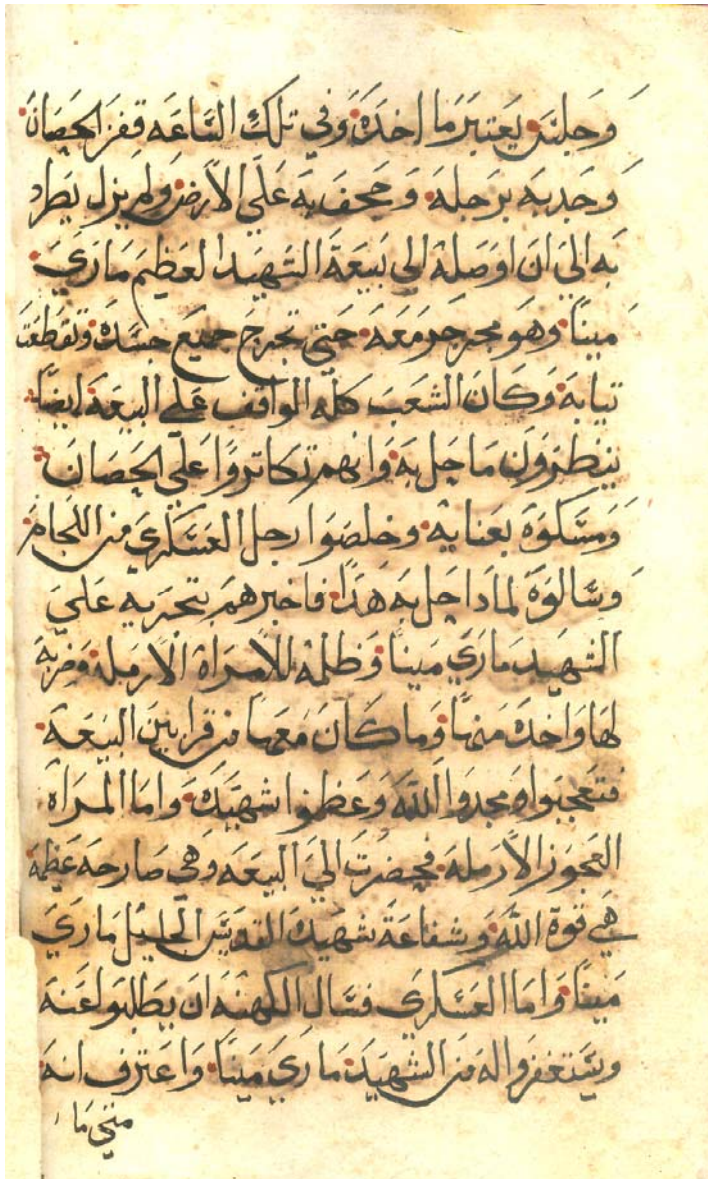 وَجلسَ يَعتبَر مَا اخدَهُ وَفي تلكَ السَّاعَه قفز الحصَانَ
وَجدبَه برَجلهَ وَجحفَ بهَ عَلَي الارضَ وَلم يزل يَطرد
بَه اليَ ان اوصَلهُ الي بَيعَةَ الشهَيد العَظيمَ مَاريَ
مينَا وهوَ مجرجَر مَعَهَ حَتي تجرحَ جميعَ جسَدهَ وَتقطعَت
تيَابهَ وَكانَ الشعَبَ كلهَ الوَاقف عَلي البيعَهَ ايضَا
ينظرَونَ مَا حَل بهَ وَانهم تكاتروَا عَلَي الحصَانَ
وَمسَكوَهُ بعَنايهَ وخلصَوَا رجل العَسَكري من اللجَامَ
وسَالوَهُ لمادَا حَل بهَ هَدَا فاخبرهمَ بتجَريه عَليَ
الشهيدَ مَاريَ مَينا وَظلمهُ للامرَاه الارمَلهَ وَضربهَ
لهَا وَاخدهَ منهَا وَما كانَ مَعهَا من قرابينَ البيَعَه
فتعَجبَوا وَمجدوَا اللهَ وَعَظموا شهيَدهَ وَاما المرَاه
العَجوَز الارملهَ فحضرَت اليَ البيعَه وَهي صَارخَه عَظيمه
هَي قوَة اللهَ وَشفاعَةَ شهيَدهَ القديَس الجليَل مَاريَ
مَينَا وَاما العَسَكري فسَال الكهنَه ان يَطلبَوا عَنهَ
ويسَتغفرَوا لهَ من الشهيَدَ مَاريَ مَينَا وَاعترف انهَ
متي مَا